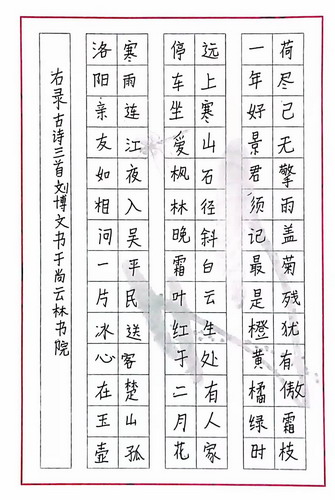 荷尽己无擎雨盖菊残犹有傲霜枝
一年好景君须记最是橙黄橘绿时
远上寒山石径斜白云生处有人家
停车坐爱枫林晚霜叶红于二月花
寒雨连江夜入吴平民送客楚山孤
洛阳亲友如相问一片冰心在玉壶
右录古诗三首刘博文书于尚云林书院